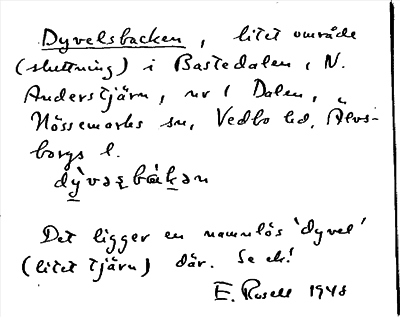 Dyvelsbacken, litet område
(sluttning) i Bastedalen i N.
Anderstjärn, nr 1 Dalen,
Nössemarks sn, Vedbo hd, Älvs-
borgs l.
Det ligger en namnlös 'dyvel'
(litet tjärn) där. Se ek!
E. Rosell 1948